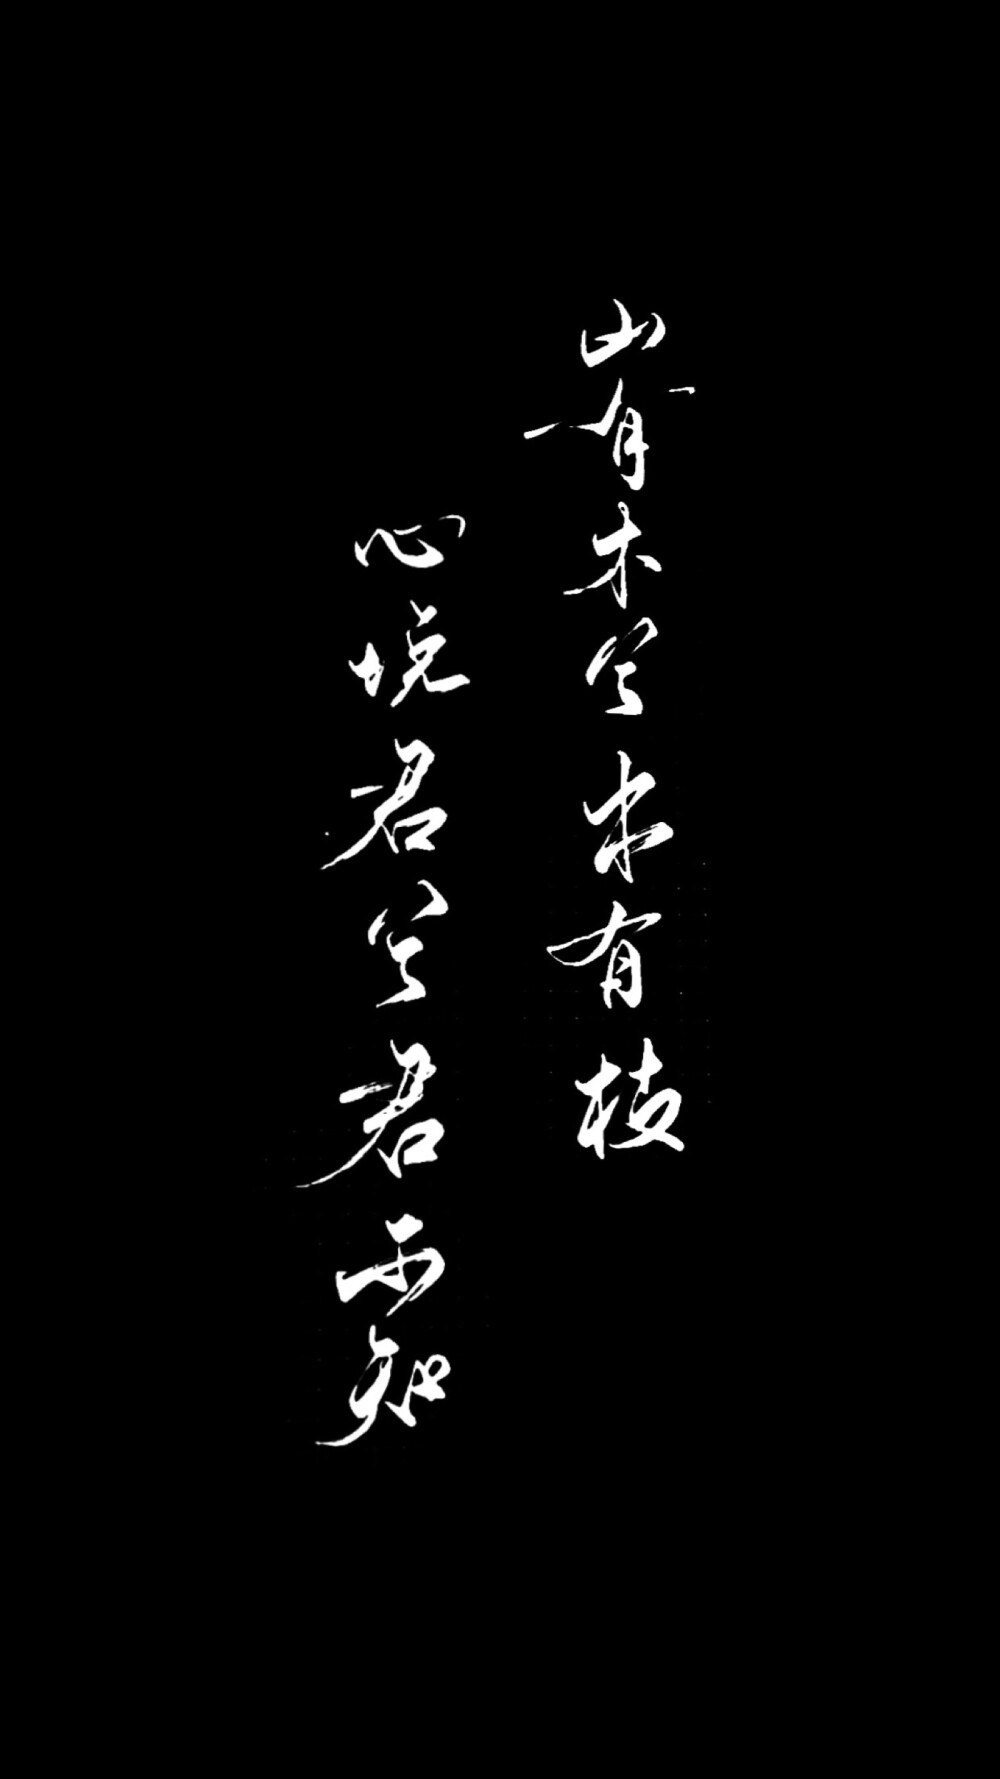 山有木兮木有枝
心悦君兮君不知